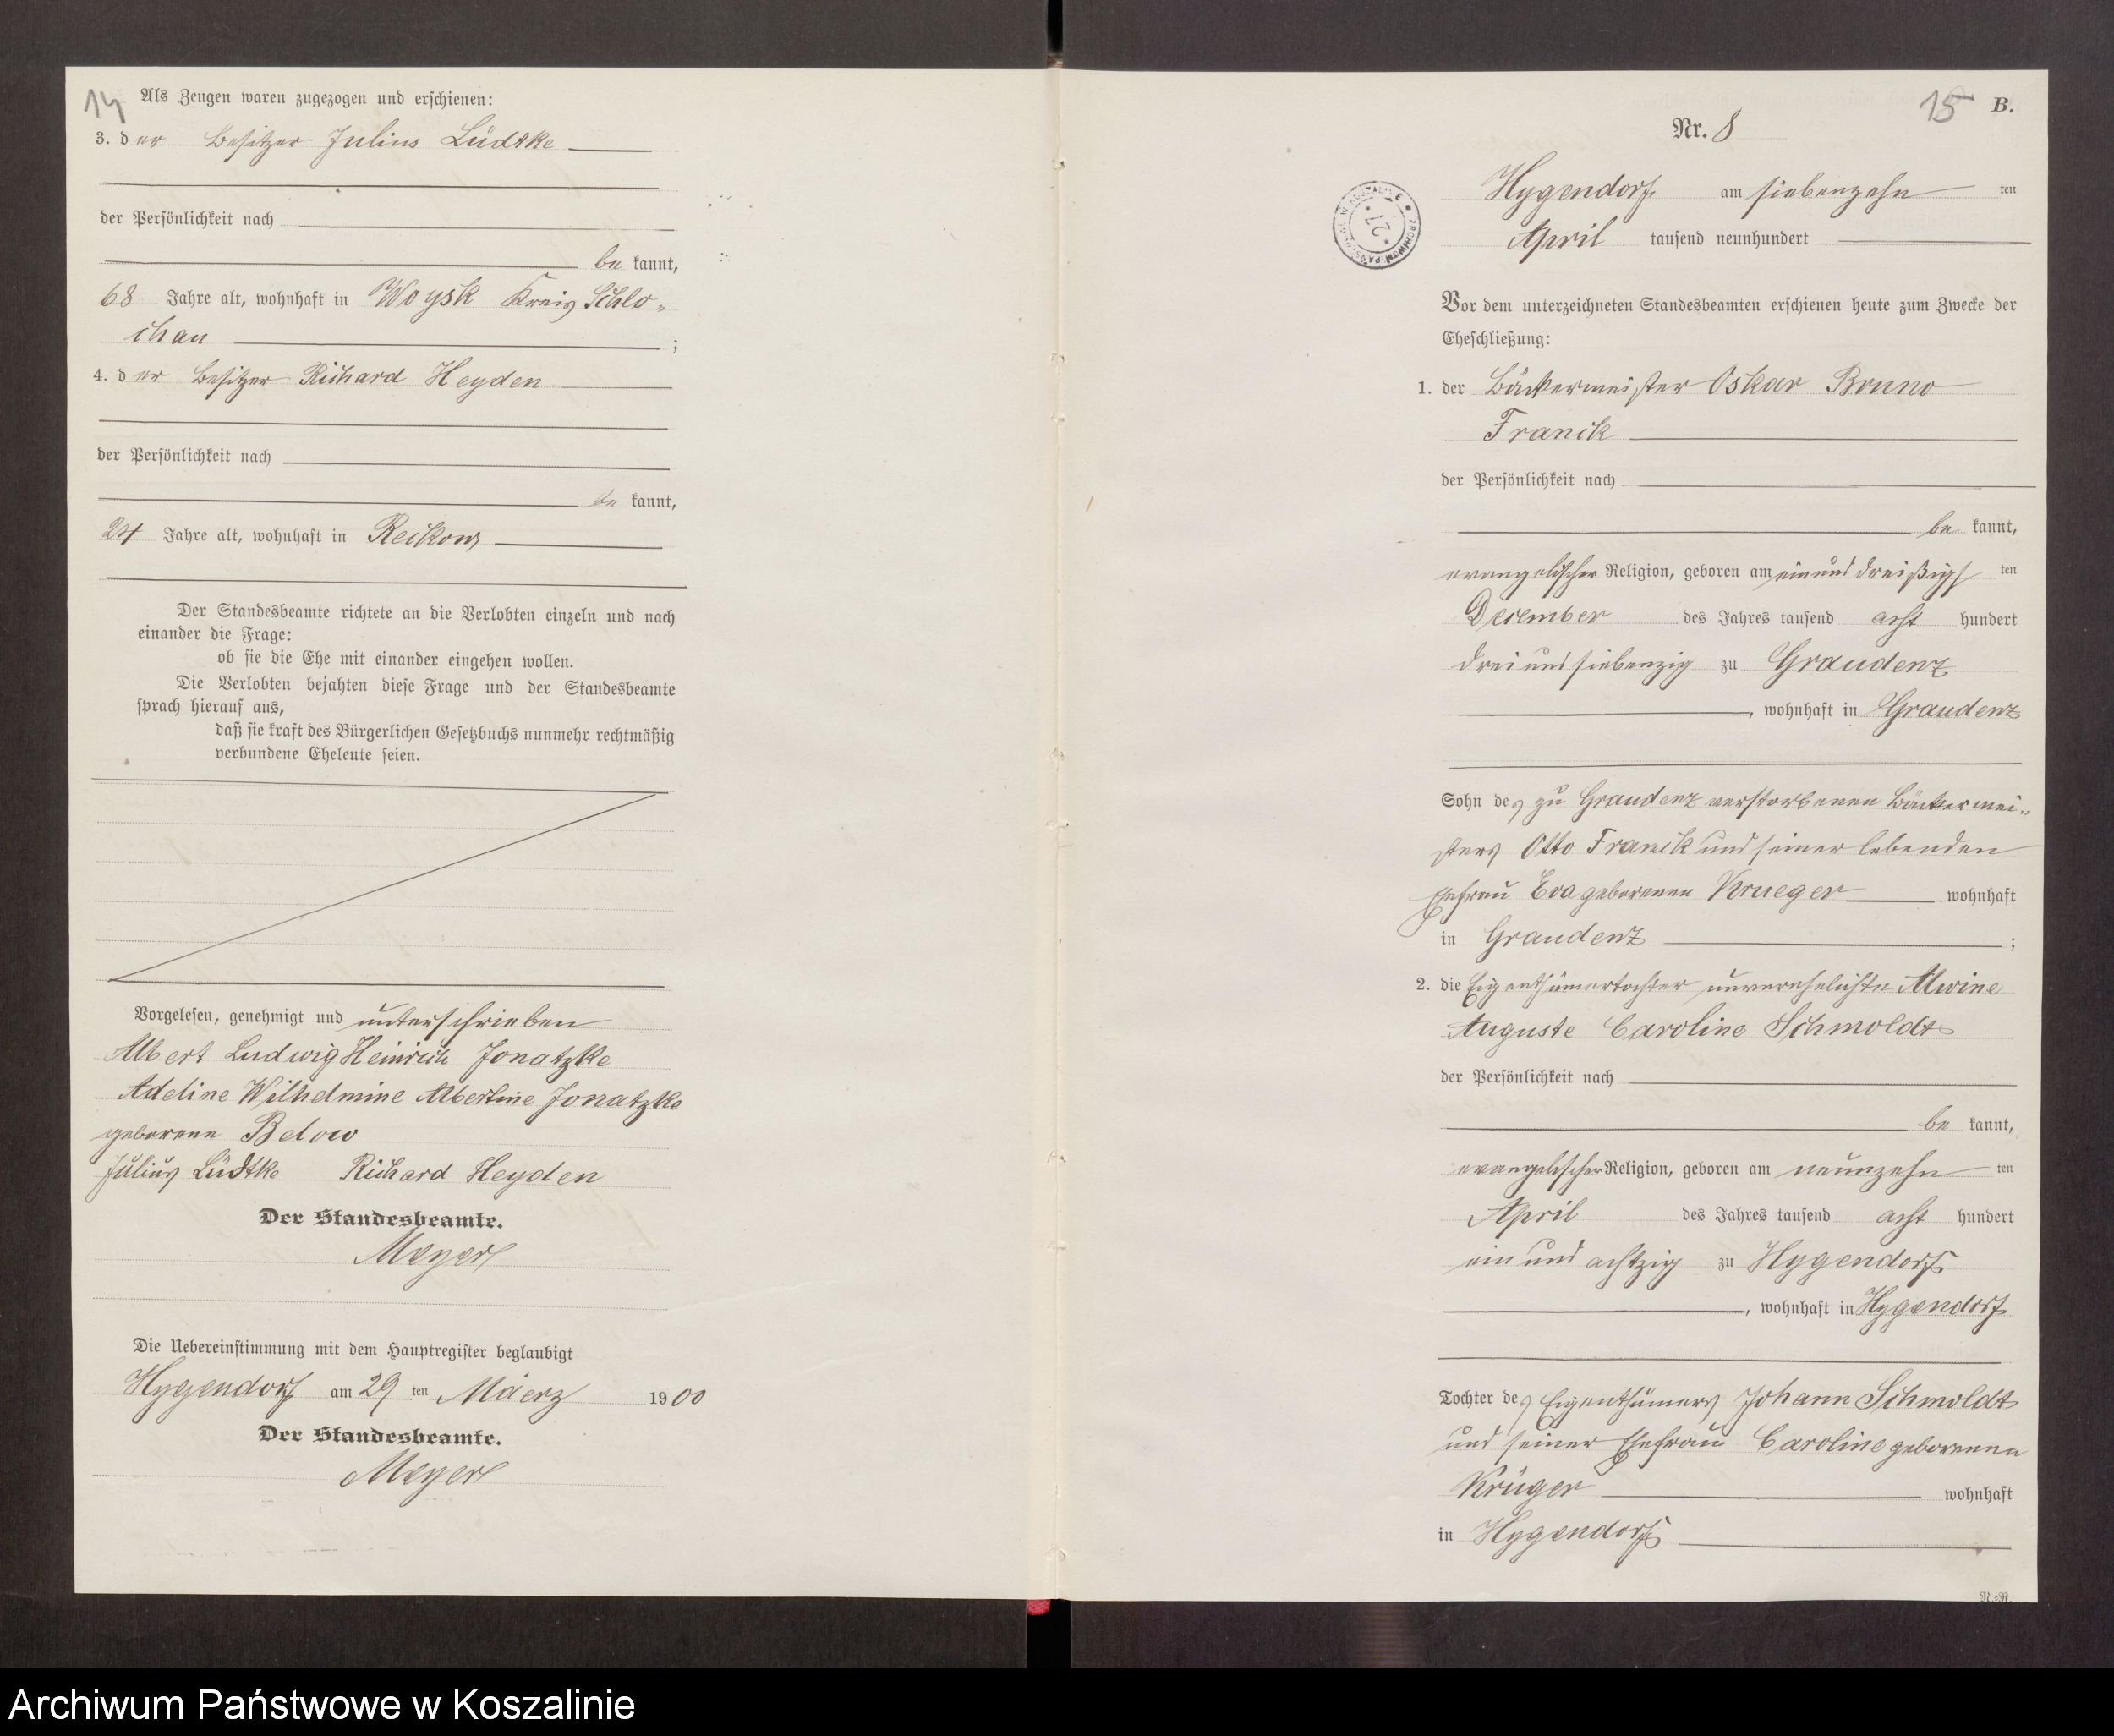 14
Als Zeugen waren zugezogen und erschienen:
3. der Besitzer Julius Lüdtke
der Persönlichkeit nach
be kannt,
68 Jahre alt, wohnhaft in Woysk Kreis Schlo-
chau ;
4. der Besitzer Richard Heyden
der Persönlichkeit nach
be kannt,
24 Jahre alt, wohnhaft in Reckow
Der Standesbeamte richtete an die Verlobten einzeln und nach
einander die Frage:
ob sie die Ehe mit einander eingehen wollen.
Die Verlobten bejahten diese Frage und der Standesbeamte
sprach hierauf aus,
daß sie kraft des Bürgerlichen Gesetzbuchs nunmehr rechtmäßig
verbundene Eheleute seien.
Vorgelesen, genehmigt und unterschrieben
Albert Ludwig Heinrich Jonatzke
Adeline Wilhelmine Albertine Jonatzke
geborene Below
Julius Lüdtke Richard Heyden
Der Standesbeamte.
Meyer
Die Uebereinstimmung mit dem Hauptregister beglaubigt
Hygendorf am 29 ten Määrz 1900
Der Standesbeamte.
Meyer
15 B.
Nr. 8
Hygendorf am siebenzehn ten
April tausend neunhundert
Vor dem unterzeichneten Standesbeamten erschienen heute zum Zwecke der
Eheschließung:
1. der Bäckermeister Oskar Bruno
Franck
der Persönlichkeit nach
be kannt,
evangelischer Religion, geboren am einunddreißigs ten
December des Jahres tausend acht hundert
dreiundsiebenzig zu Graudenz
, wohnhaft in Graudenz
Sohn des zu Graudenz verstorbenen Bäckermei-
sters Otto Franck und seiner lebenden
Ehefrau Eva geborenen Krueger wohnhaft
in Graudenz ;
2. die Eigenthümertochter unverehelichte Alwine
Auguste Caroline Schmoldt
der Persönlichkeit nach
be kannt,
evangelischer Religion, geboren am neunzehn ten
April des Jahres tausend acht hundert
ein und achtzig zu Hygendorf
, wohnhaft in Hygendorf
Tochter des Eigenthümers Johann Schmoldt
und seiner Ehefrau Caroline geborenen
Krüger wohnhaft
in Hygendorf
Archiwum Państwowe w Koszalinie